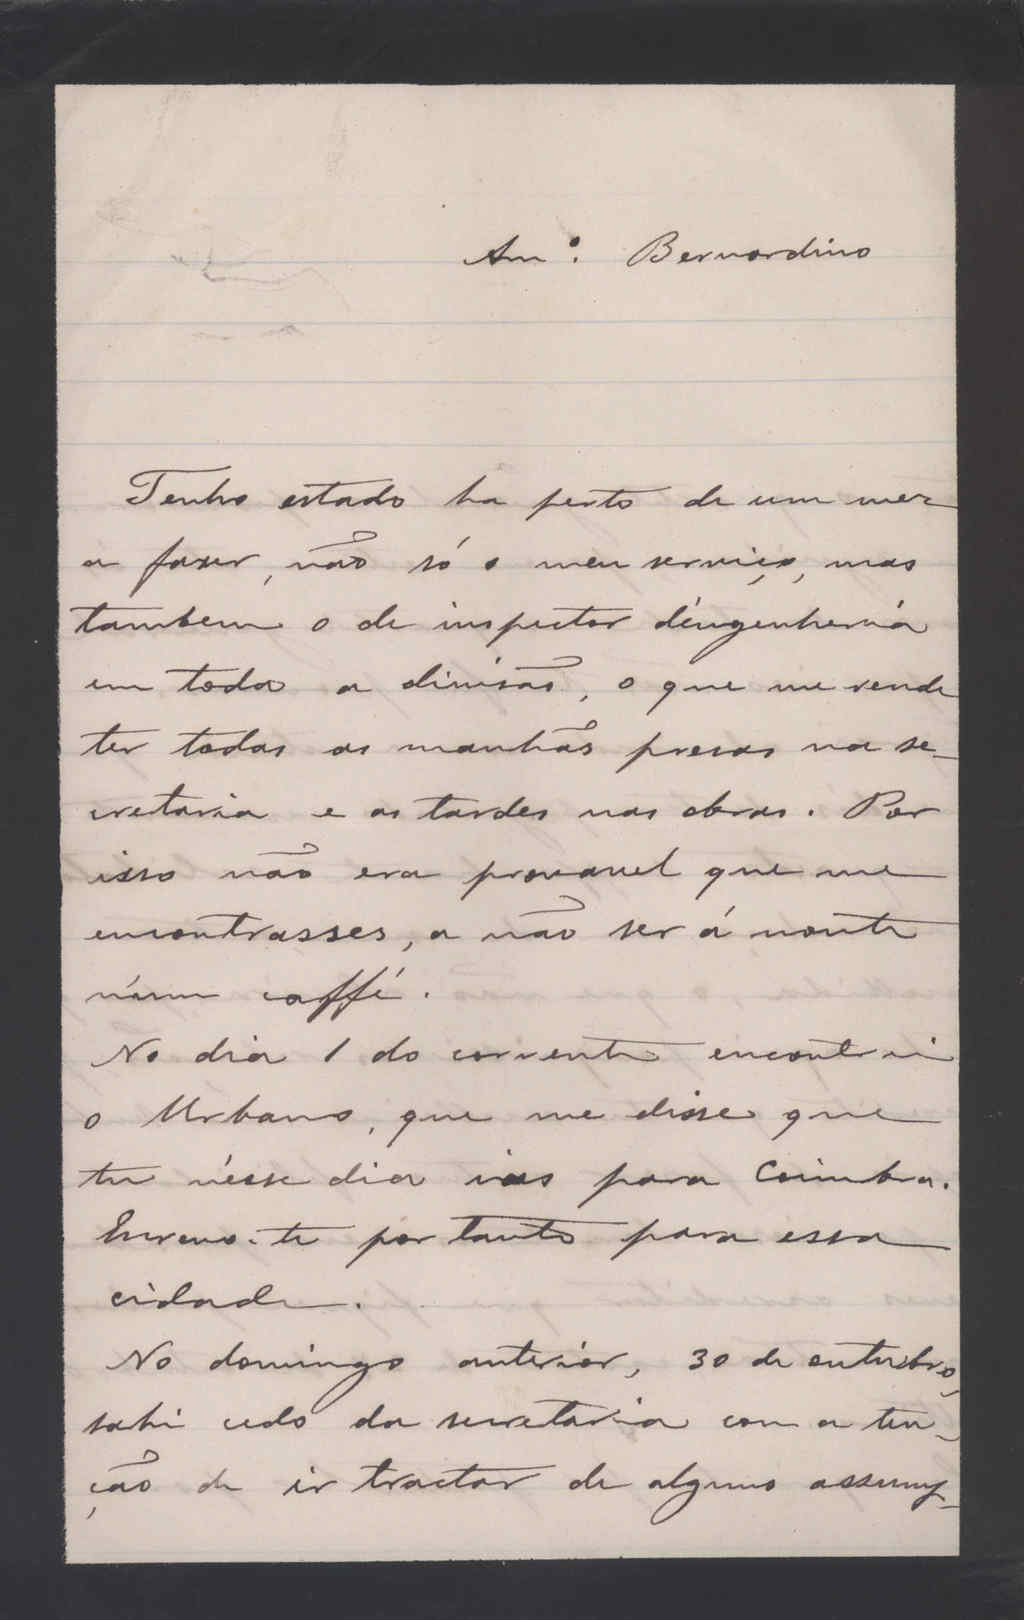 Am.º Bernardino
Tenho estado ha perto de um mez
a fazer, não só o meu serviço, mas
tambem o de inspector d'engenheria
em toda a divisão, o que me rende
ter todas as manhãs presas na se-
cretaria e as tardes nas obras. Por
isso não era provavel que me
encontrasses, a não ser á noute
n'um caffé.
No dia 1 do corrente encontrei
o Urbano, que me disse que
tu n'esse dia ias para Coimbra.
Escrevo-te por tanto para essa
cidade.
No domingo anterior, 30 de outubro,
sahi cedo da secretaria com a ten-
ção de ir tractar de alguns assump-